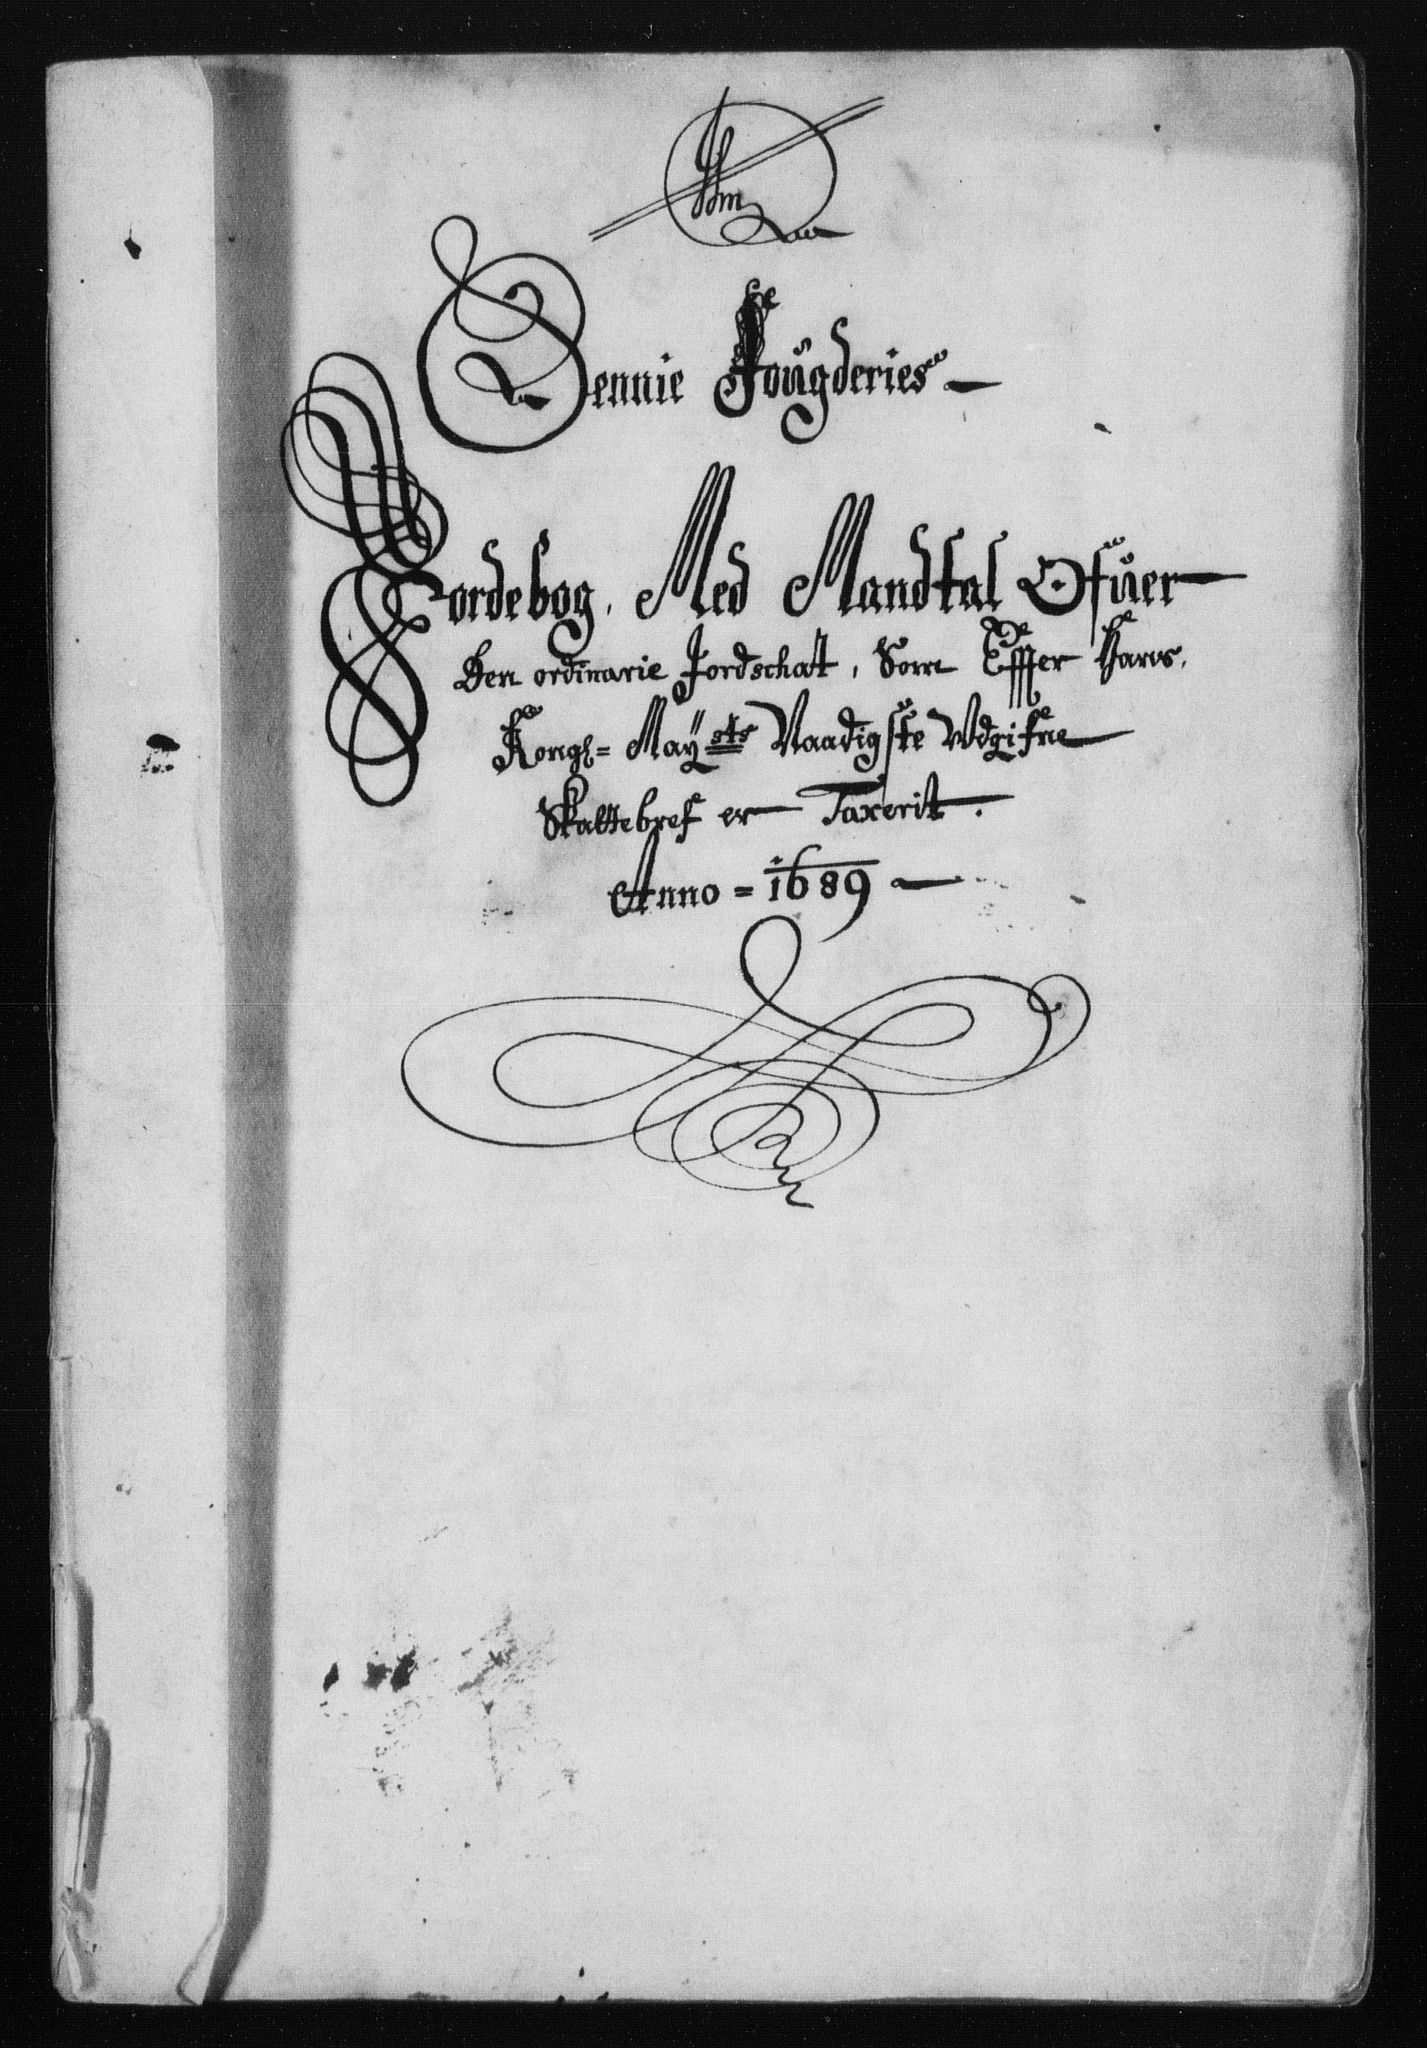 Sennie Fougderies
Jordebog, Med Mandtal Ofuer
Den ordinarie Jordschatt, Som Effter Hans
Kongl= Mayᵗˢ Naadigste Wdgifne
Skattebref er Taxerit.
Anno = 1689